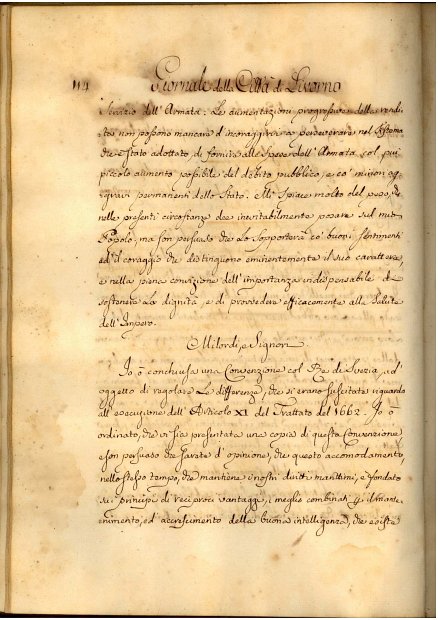 114 Giornale della Città di Livorno
servizio dell' Armata: Le aumentazioni progressive delle rendi-
te non possono mancare d'incoraggirvi a perseverare nel sistema
che è stato adottato, di fornire alle spese dell' Armata col più
piccolo aumento possibile del debito pubblico, e co' minori ag-
gravi permanenti dello Stato. Mi spiace molto del peso, che
nelle presenti circostanze dee inevitabilmente posare sul mio
Popolo, ma son persuaso che lo sopporterà co' buoni sentimenti
ed il coraggio che distinguono eminentemente il suo carattere,
e nella piena convizione dell' importanza indispensabile di
sostenere la dignità, e di provvedere efficacemente alla salute
dell' Impero.
Milordi, e Signori
Io ò conchiusa una Convenzione col Re di Svezia, ad
oggetto di regolare le differenze, che si erano suscitate riguardo
all' esecuzione dell' Articolo XI del Trattato del 1662. Io ò
ordinato, che vi sia presentata una copia di questa Convenzione,
e son persuaso che sarete d' opinione, che questo accomodamento,
nello stesso tempo, che mantiene i nostri diritti marittimi, è fondato
su i principj di reciproci vantaggi, i meglio combinati p. il mante-
nimento, ed accrescimento della buona intelligenza, che esiste